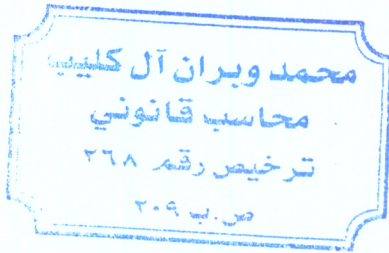 محمد وبران آل كليب
محاسب قانوني
ترخيص رقم ٢٦٨
ص.ب ٢٠٩